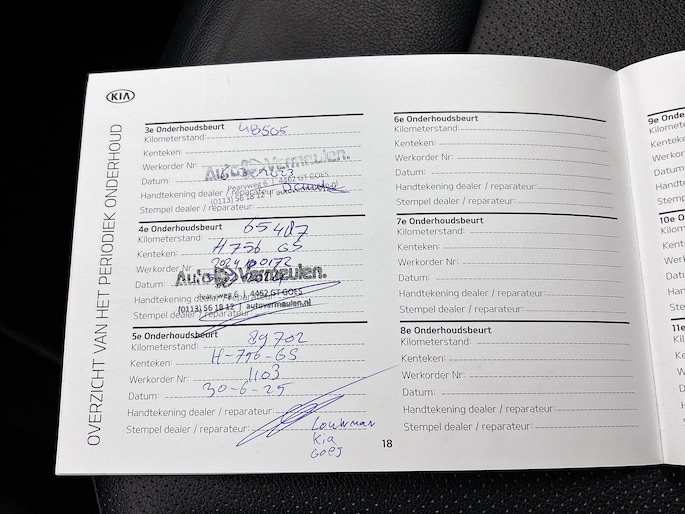 KIA
OVERZICHT VAN HET PERIODIEK ONDERHOUD
3e Onderhoudsbeurt
Kilometerstand: 48505
Kenteken:
Werkorder Nr:
Auto Vermeulen.
Datum: 2023
Pearyweg 6 | 4462 GT GOES
Handtekening dealer / reparateur:
(0113) 56 18 12 | autovermeulen.nl
Stempel dealer / reparateur:
4e Onderhoudsbeurt
Kilometerstand: 65417
Kenteken: H 756 GS
Werkorder Nr:
Auto Vermeulen.
Datum:
Pearyweg 6 | 4462 GT GOES
Handtekening dealer / reparateur:
(0113) 56 18 12 | autovermeulen.nl
Stempel dealer / reparateur:
5e Onderhoudsbeurt
Kilometerstand: 89702
Kenteken: H-756-GS
Werkorder Nr: 1103
Datum: 30-6-25
Handtekening dealer / reparateur:
Stempel dealer / reparateur: Louwman
Kia
Goes
6e Onderhoudsbeurt
Kilometerstand:
Kenteken:
Werkorder Nr:
Datum:
Handtekening dealer / reparateur:
Stempel dealer / reparateur:
7e Onderhoudsbeurt
Kilometerstand:
Kenteken:
Werkorder Nr:
Datum:
Handtekening dealer / reparateur:
Stempel dealer / reparateur:
8e Onderhoudsbeurt
Kilometerstand:
Kenteken:
Werkorder Nr:
Datum:
Handtekening dealer / reparateur:
Stempel dealer / reparateur:
18
9e Onde
Kilomete
Kenteke
Werkor
Datum:
Handte
Stempe
10e O
Kilom
Kente
Werk
Datu
Hand
Stem
11e
Kilo
Ken
We
Da
Ha
St